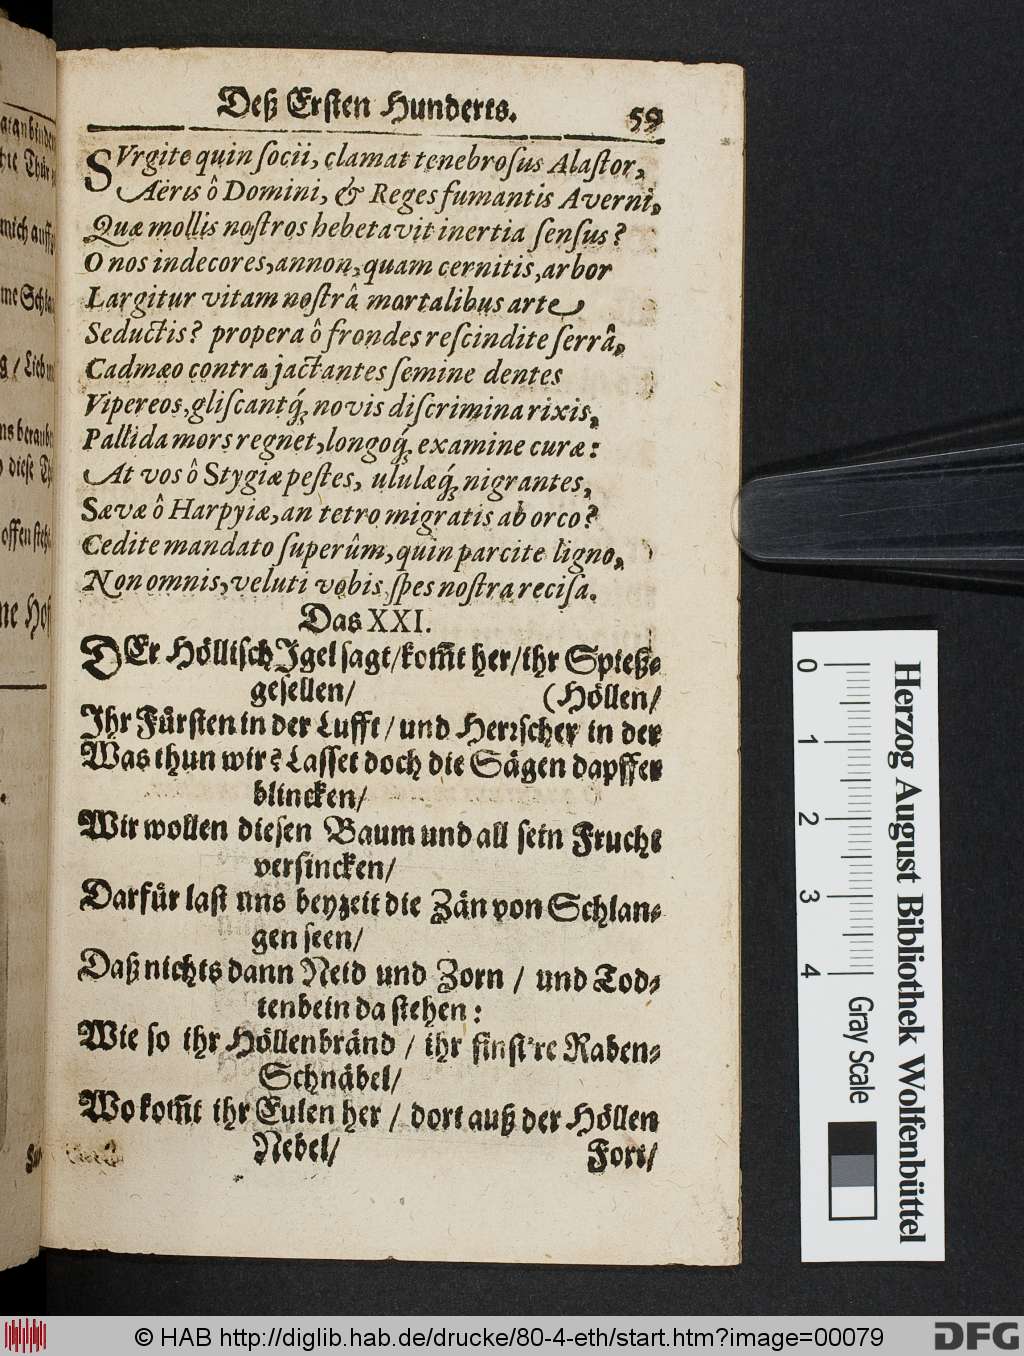 Deß Ersten Hunderts. 59
SVrgite quin socii, clamat tenebrosus Alastor,
Aëris ô Domini, & Reges fumantis Averni,
Quæ mollis nostros hebetavit inertia sensus?
O nos indecores, annon, quam cernitis, arbor
Largitur vitam nostrâ mortalibus arte
Seductis? propera ô frondes rescindite serrâ,
Cadmæo contra jactantes semine dentes
Vipereos, gliscantq́; novis discrimina rixis,
Pallida mors regnet, longoq́; examine curæ:
At vos ô Stygiæ pestes, ululæq́; nigrantes,
Sævæ ô Harpyiæ, an tetro migratis ab orco?
Cedite mandato superûm, quin parcite ligno,
Non omnis, veluti vobis spes nostra recisa.
Das XXI.
DEr Höllisch Igel sagt/kom̃t her/ihr Spieß-
gesellen/ (Höllen/
Ihr Fürsten in der Lufft / und Herrscher in der
Was thun wir? Lasset doch die Sägen dapffer
blincken/
Wir wollen diesen Baum und all sein Frucht
versincken/
Darfür last uns beyzeit die Zän von Schlan-
gen seen/
Daß nichts dann Neid und Zorn / und Tod-
tenbein da stehen:
Wie so ihr Höllenbränd / ihr finst're Raben-
Schnäbel/
Wo kom̃t ihr Eulen her / dort auß der Höllen
Nebel/ Fort/
0 1 2 3 4
Gray Scale
Herzog August Bibliothek Wolfenbüttel
© HAB http://diglib.hab.de/drucke/80-4-eth/start.htm?image=00079
DFG